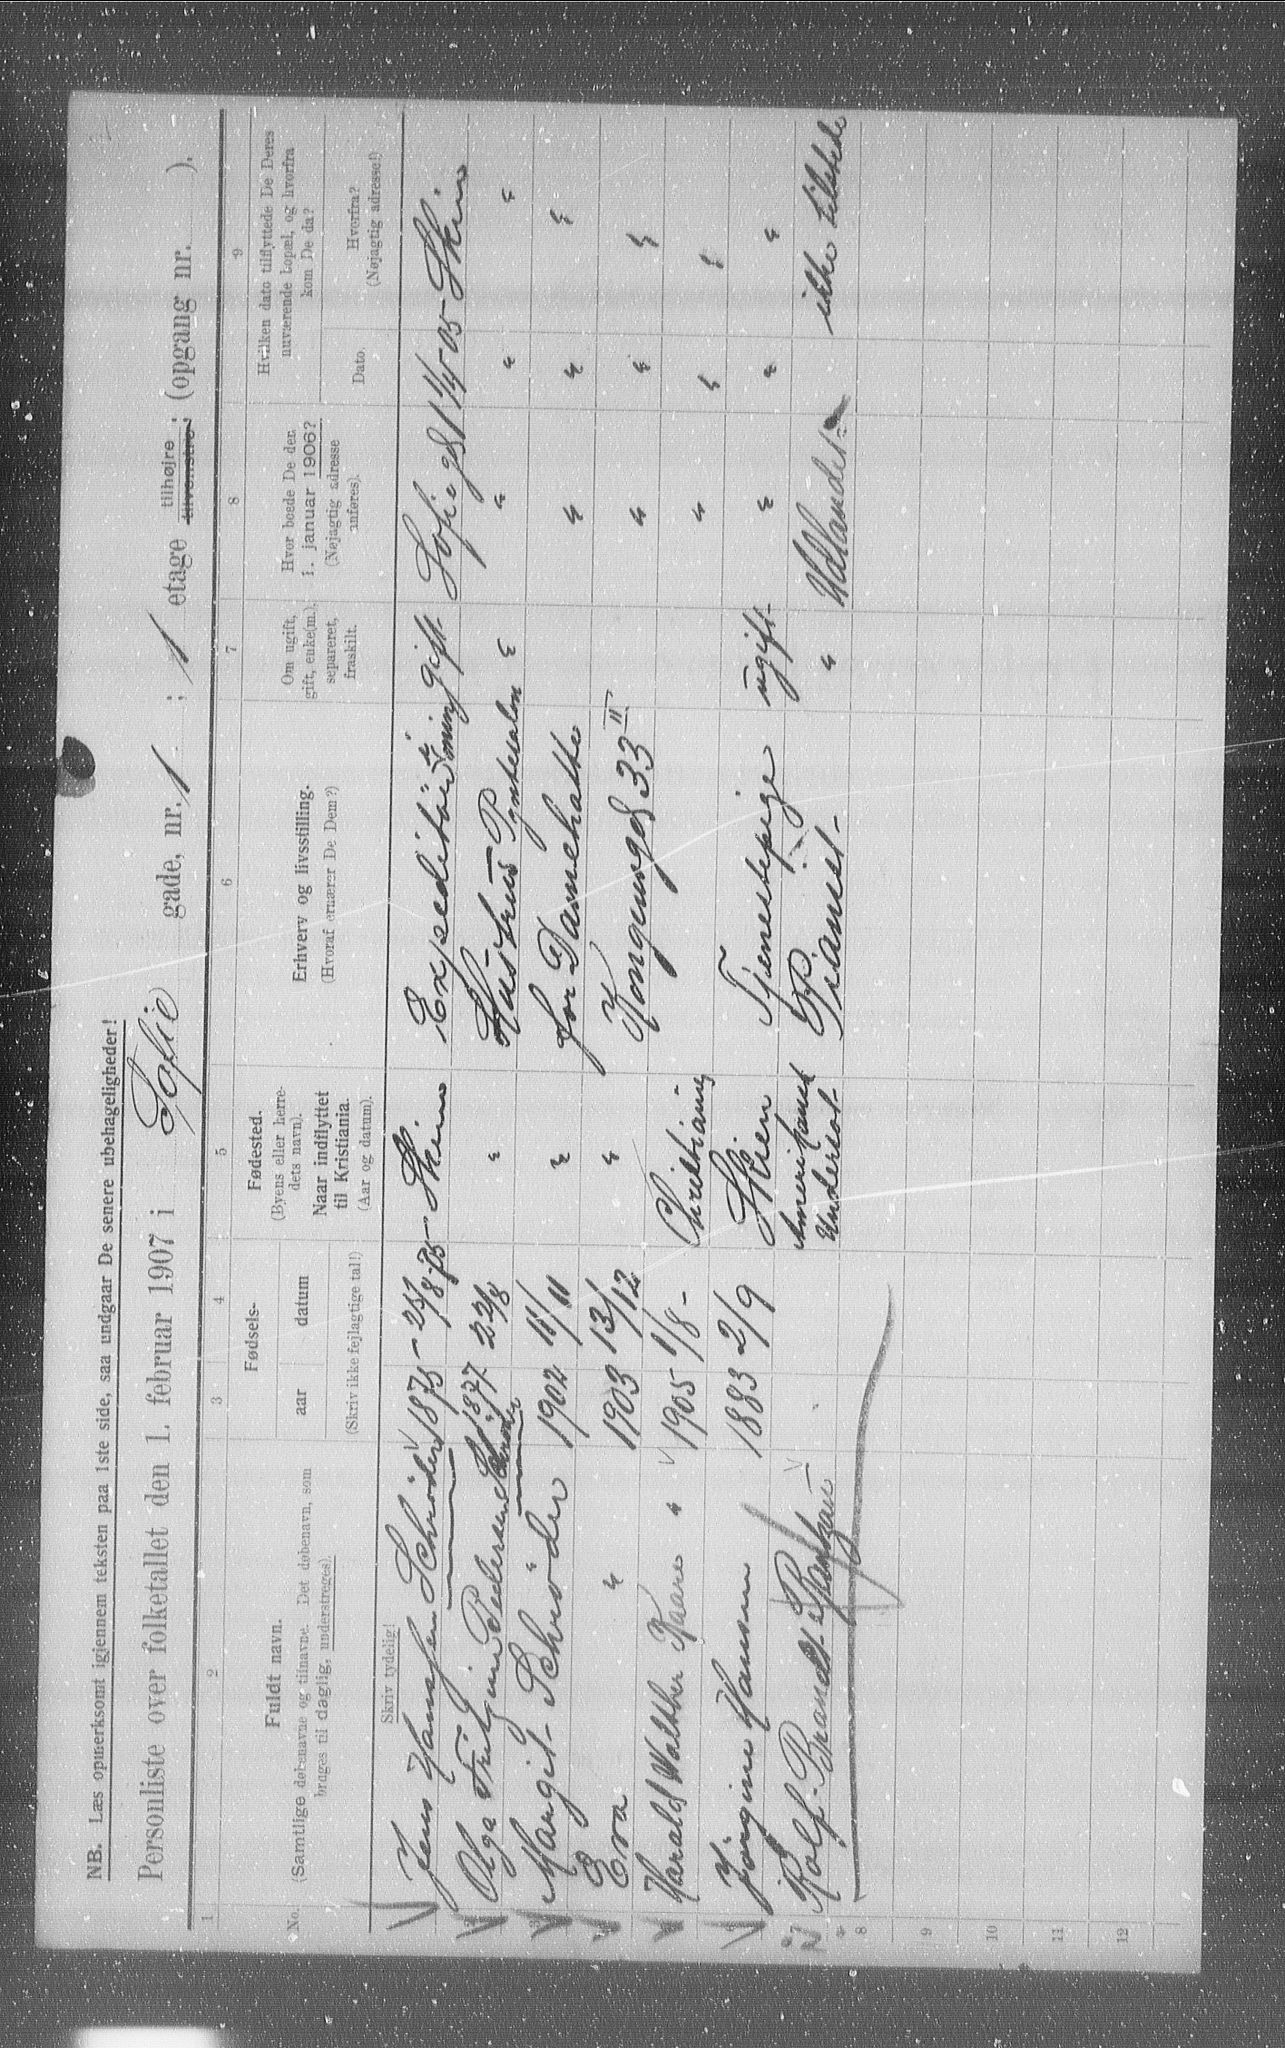 NB. Læs opmerksomt igjennem teksten paa 1ste side, saa undgaar De senere ubehageligheder!
Personliste over folketallet den 1. februar 1907 i Sofie gade, nr. 1 ; 1 etage tilhøjre tilvenstre ; (opgang nr. ).
1 2 3 4 5 6 7 8 9
No. Fuldt navn. (Samtlige døbenavne og tilnavne. Det døbenavn, som bruges til daglig, understreges). Skriv tydelig!
Fødsels- aar datum (Skriv ikke fejlagtige tal!)
Fødested. (Byens eller herredets navn). Naar indflyttet til Kristiania. (Aar og datum).
Erhverv og livsstilling. (Hvoraf ernærer De Dem?)
Om ugift, gift, enke(m.), separeret, fraskilt.
Hvor boede De den 1. januar 1906? (Nøjagtig adresse anføres).
Hvilken dato tilflyttede De Deres nuværende bopæl, og hvorfra kom De da?
Dato. Hvorfra? (Nøjagtig adresse!)
Jens Hansen Schrøder 1875 25/8-75 Skien Expeditør gift Sofiegd 1 1/4 05 Skien
Olga Pedersen Schrøder 1877 22/8 " Hustru " " " "
Margit Schrøder 1902 11/11 " for Damehatte " " "
Eva " 1903 13/12 " Kongensgd 33 II " " "
Harald Walther Kaare " 1905 1/8 - Christiania " " "
Jørgine Hansen 1883 2/9 Skien Tjenestepige ugift " " "
7 Rolf Brandt Amerikansk Undersot. Pianist " Udlandet ikke tilstede
8
9
10
11
12